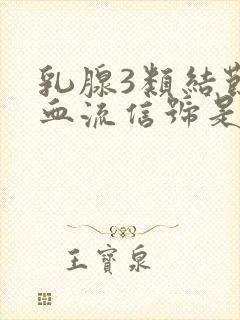 乳腺3類結
血流信號是
王寶泉